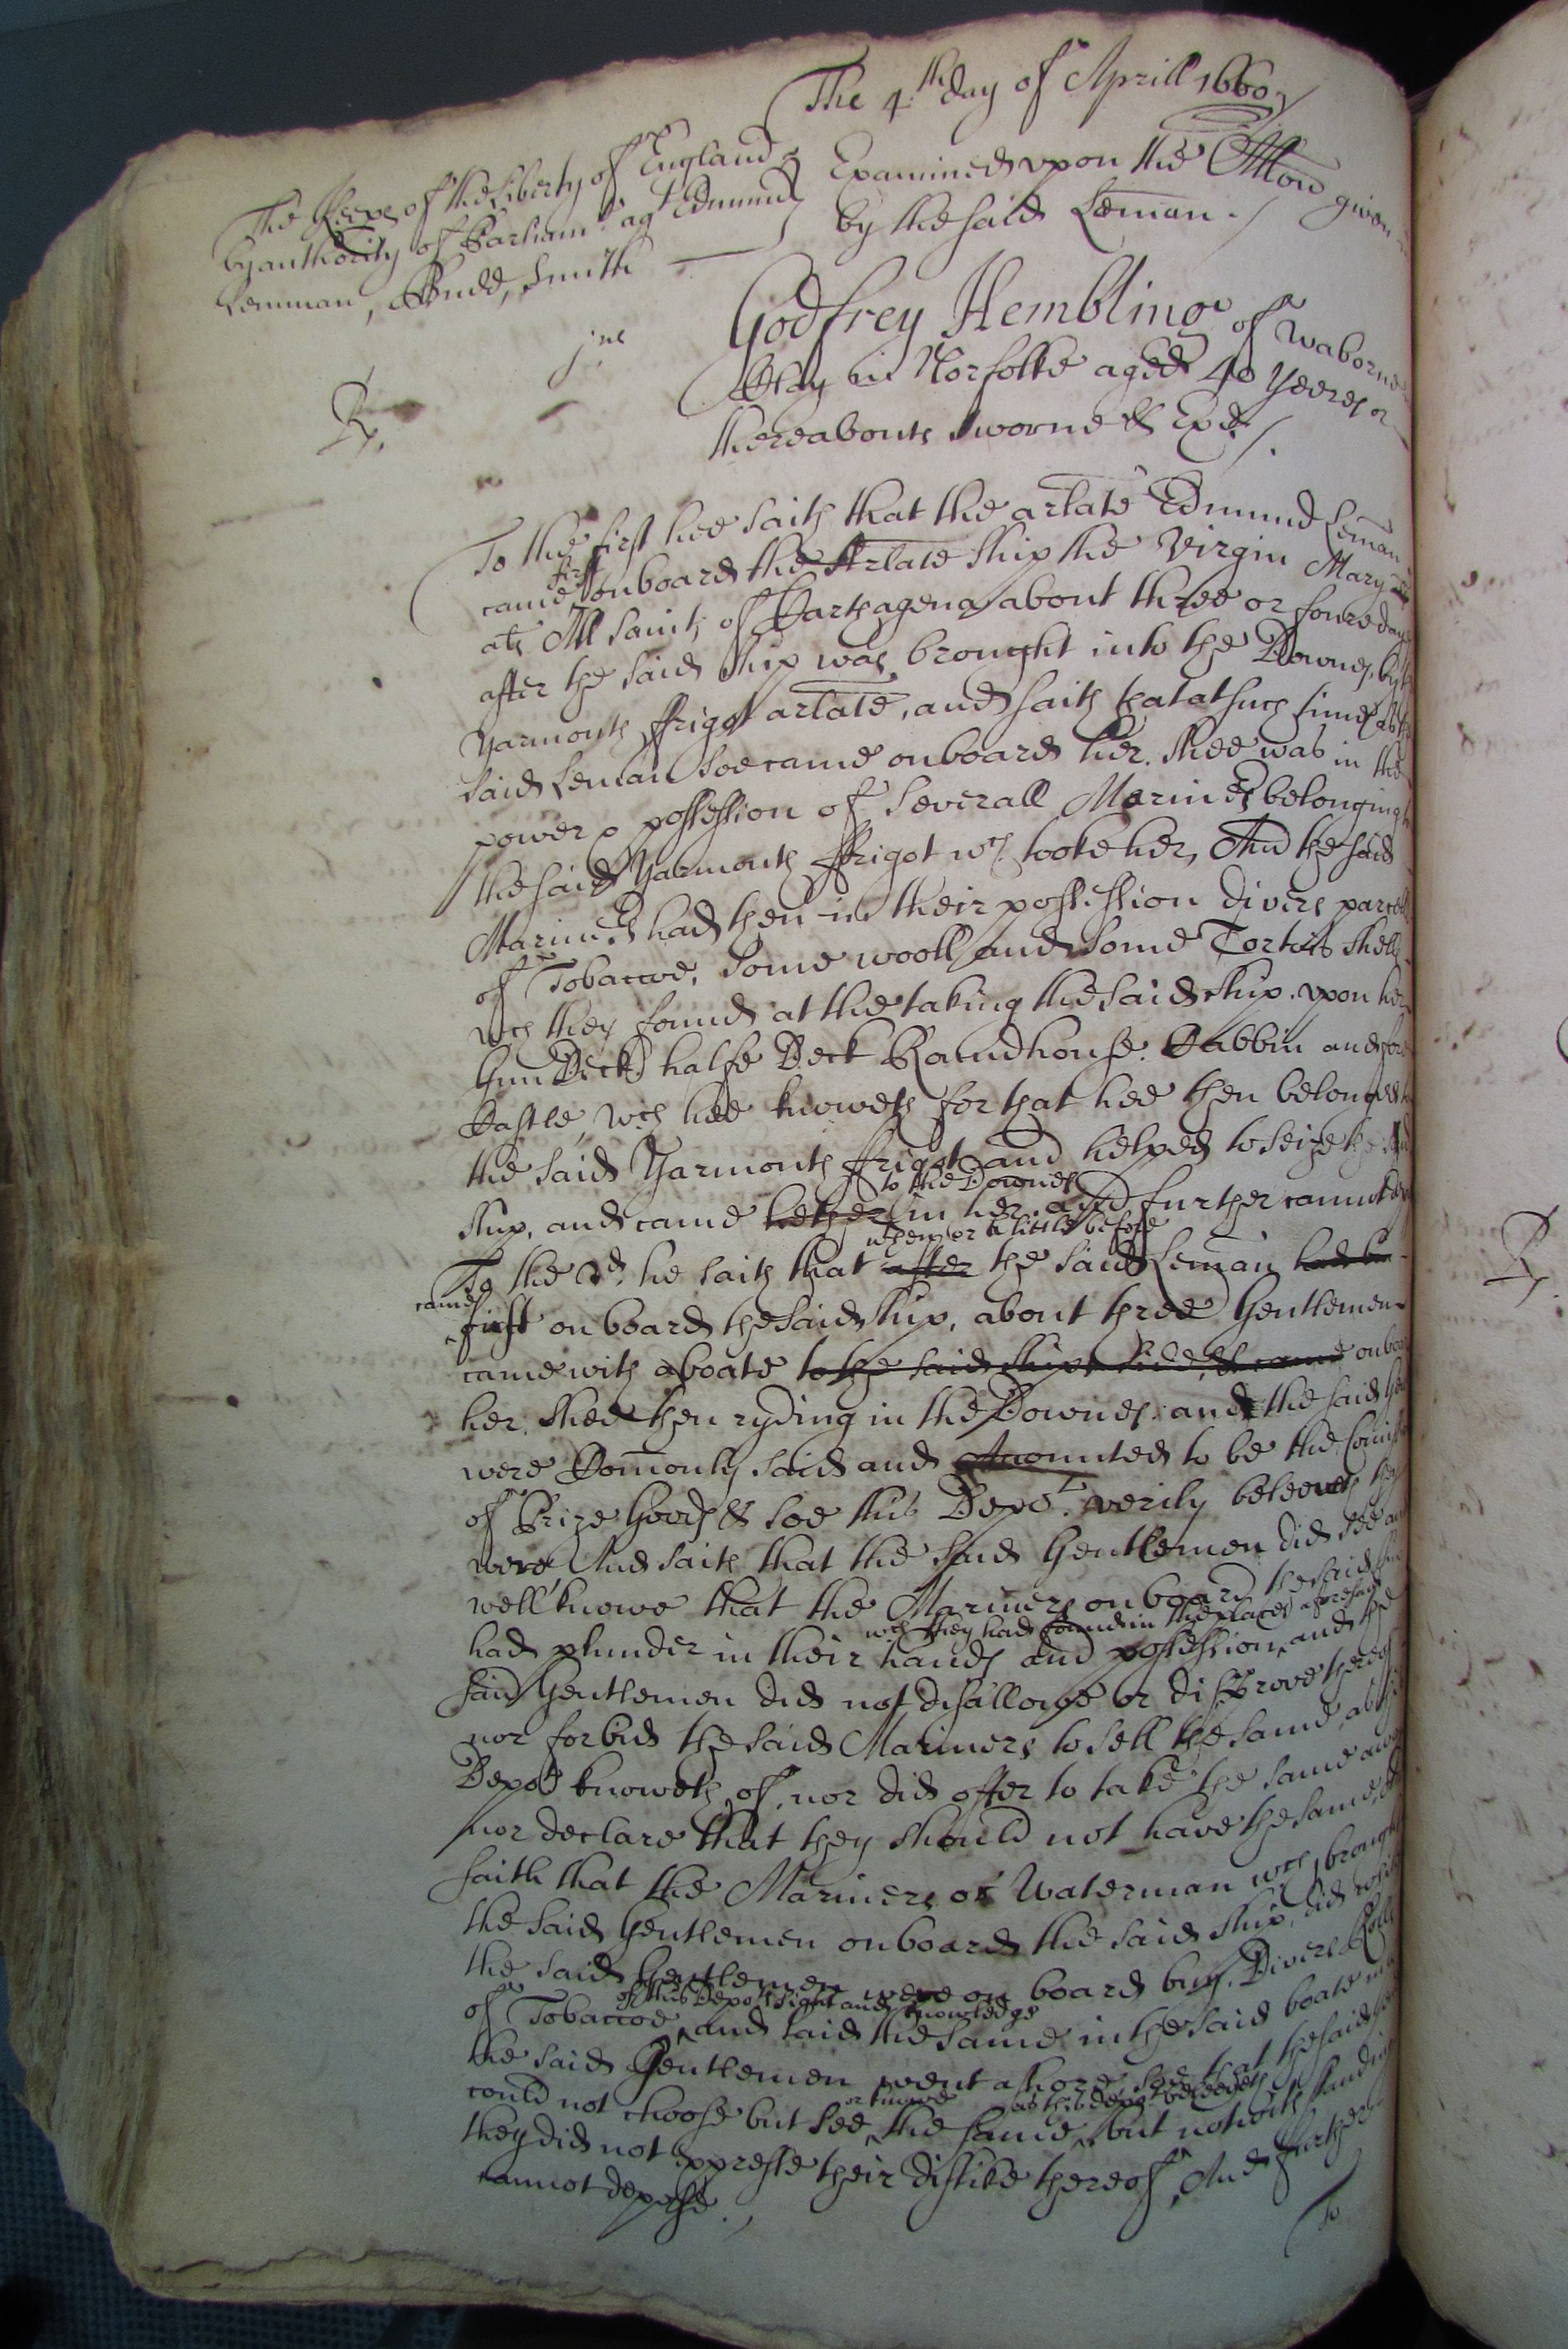 The 4:th day of Aprill 1660
The Keepers of the Liberty of England
by authority of Parliamt. agt Edmund
Lemman, Budd, Smith
Examined upon the Allon given
by the said Leman./
jus
Godfrey Hembling of Waborne
Bay in Norfolke aged 40 yeeres or
thereabouts sworne & Exd./.
R.
To the first hee saith that the arlate Edmund Leman
came first onboard the Arlate ship the Virgin Mary
als All saints of Carthagena about three or foure days
after the said ship was brought into the Downes, by
Yarmouth ffrigot arlate, and saith that at such time as the
said Leman soe came onboard her. shee was in the
power & possession of severall Marinrs belonging
the said Yarmouth ffrigot wch tooke her, And the said
Marinrs had then in their possession divers parcells
of Tobaccoe, some wooll and some Tortois shell
wch they found at the taking the said ship. upon her
Gun Deck, halfe Deck Roundhouse. Cabbin and fore
Castle, wch hee knoweth for that hee then belonged
the said Yarmouth ffrigot and helped to seize the said
ship, and came hether to the Downes in her. and further cannot
To the 2d. he saith that after when or a little before the said Leman
came first on board the said ship, about three Gentlemen
came with a boate to the said ships side, & came onboard
her. shee then ryding in the Downes. and the said
were Comonly said and Accounted to be the
of Prize Goods & soe this Depot. verily beleeveth they
were, And saith that the said Gentlemen did see and
well knowe that the Mariners on board the said
had plunder in their hands and possession wch they had found in the places aforesaid and the
said Gentlemen did not disallowe or disprove thereof
nor forbid the said Mariners to sell the same, as this
Depot knoweth of, nor did offer to take the same away
nor declare that they should not have the same,
saith that the Mariners or Waterman wch brought
the said Gentlemen onboard the said ship, did whilst
the said Gentlemen were on board buy. Divers Rolls
of Tobaccoe of this Depots sight and knowledge and laid the same in the said boate
the said Gentlemen went ashore, soe that the said
could not choose but see or knowe the same as this depot beleeveth, but notwithstanding
they did not expresse their dislike thereof, And further
cannot depose./
To
R.